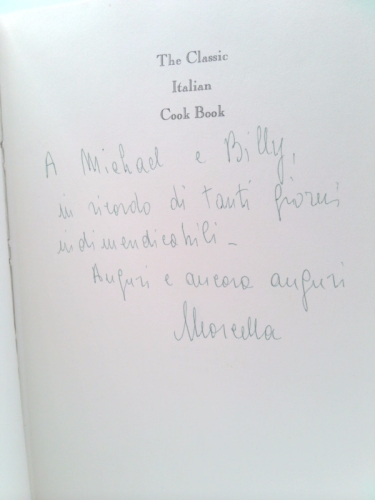 The Classic
Italian
Cook Book
A Michael e Billy,
in ricordo di tanti giorni
indimendicabili –
Auguri e ancora auguri
Marcella